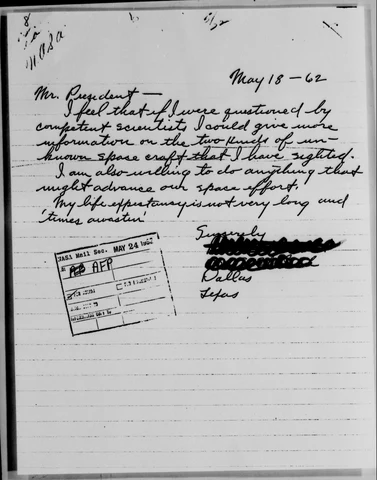 8
to
NASA
5/22
May 18-62
Mr. President—
I feel that if I were questioned by
competent scientists I could give more
information on the two kinds of un-
known space craft that I have sighted.
I am also willing to do anything that
might advance our space effort.
My life expectancy is not very long and
'times awastin'
Sincerely
Dallas
Texas
NASA Mail Sec. MAY 24 1962
AFP